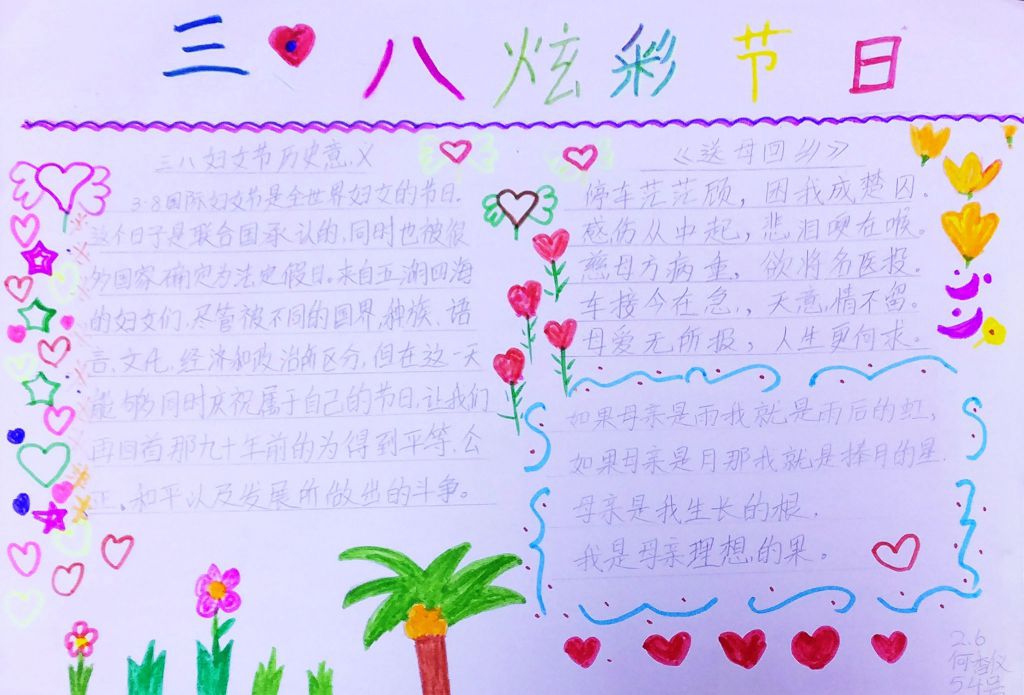 三八炫彩节日
三八妇女节历史意义
3·8国际妇女节是全世界妇女的节日.
这个日子是联合国承认的,同时也被很
多国家确定为法定假日。来自五湖四海
的妇女们,尽管被不同的国界,种族、语
言、文化、经济和政治所区分,但在这一天
能够同时庆祝属于自己的节日,让我们
再回首那九十年前的为得到平等、公
正、和平以及发展所做出的斗争。
《送母回乡》
停车茫茫顾，困我成楚囚.
感伤从中起，悲泪哽在喉。
慈母方病重，欲将名医投.
车接今在急，天意情不留。
母爱无所报，人生更何求。
如果母亲是雨我就是雨后的虹,
如果母亲是月那我就是捧月的星.
母亲是我生长的根.
我是母亲理想的果。
2.6
何
54号